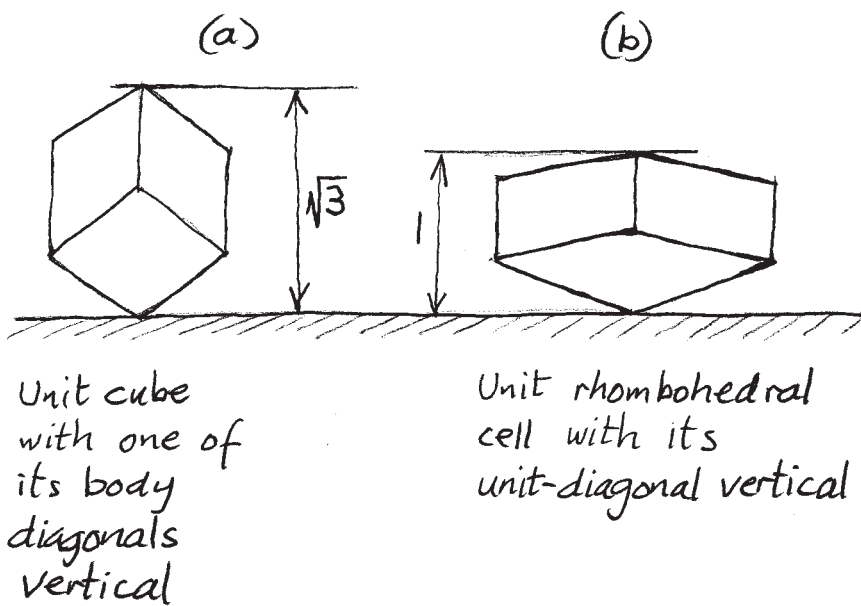 (a)
(b)
√3
1
Unit cube
with one of
its body
diagonals
vertical
Unit rhombohedral
cell with its
unit-diagonal vertical